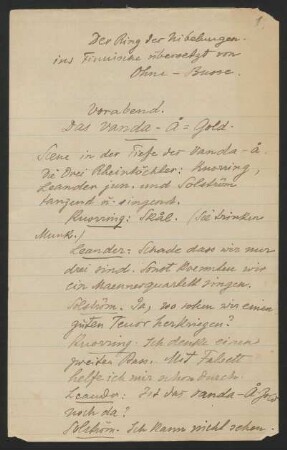 1
Der Ring der Nibelungen.
ins Finnische übersetzt von
Ohne-Busse.
Vorabend.
Das Vanda-Å=Gold.
Scene in der Tiefe der Vanda-å.
Die Drei Rheintöchter: Knorring,
Leander jun. und Solström
tanzend u. singend.
Knorring: Skål. (Sie trinken
Munk.)
Leander: Schade dass wir nur
drei sind. Sonst koennten wir
ein Maennerquartett singen.
Solström. Ja, wo sollen wir einen
guten Tenor herkriegen?
Knorring. Ich denke einen
zweiten Bass. Mit Falsett
helfe ich mir schon durch.
Leander: Ist das Vanda-Å Gold
noch da?
Solström. Ich kann nicht sehen.